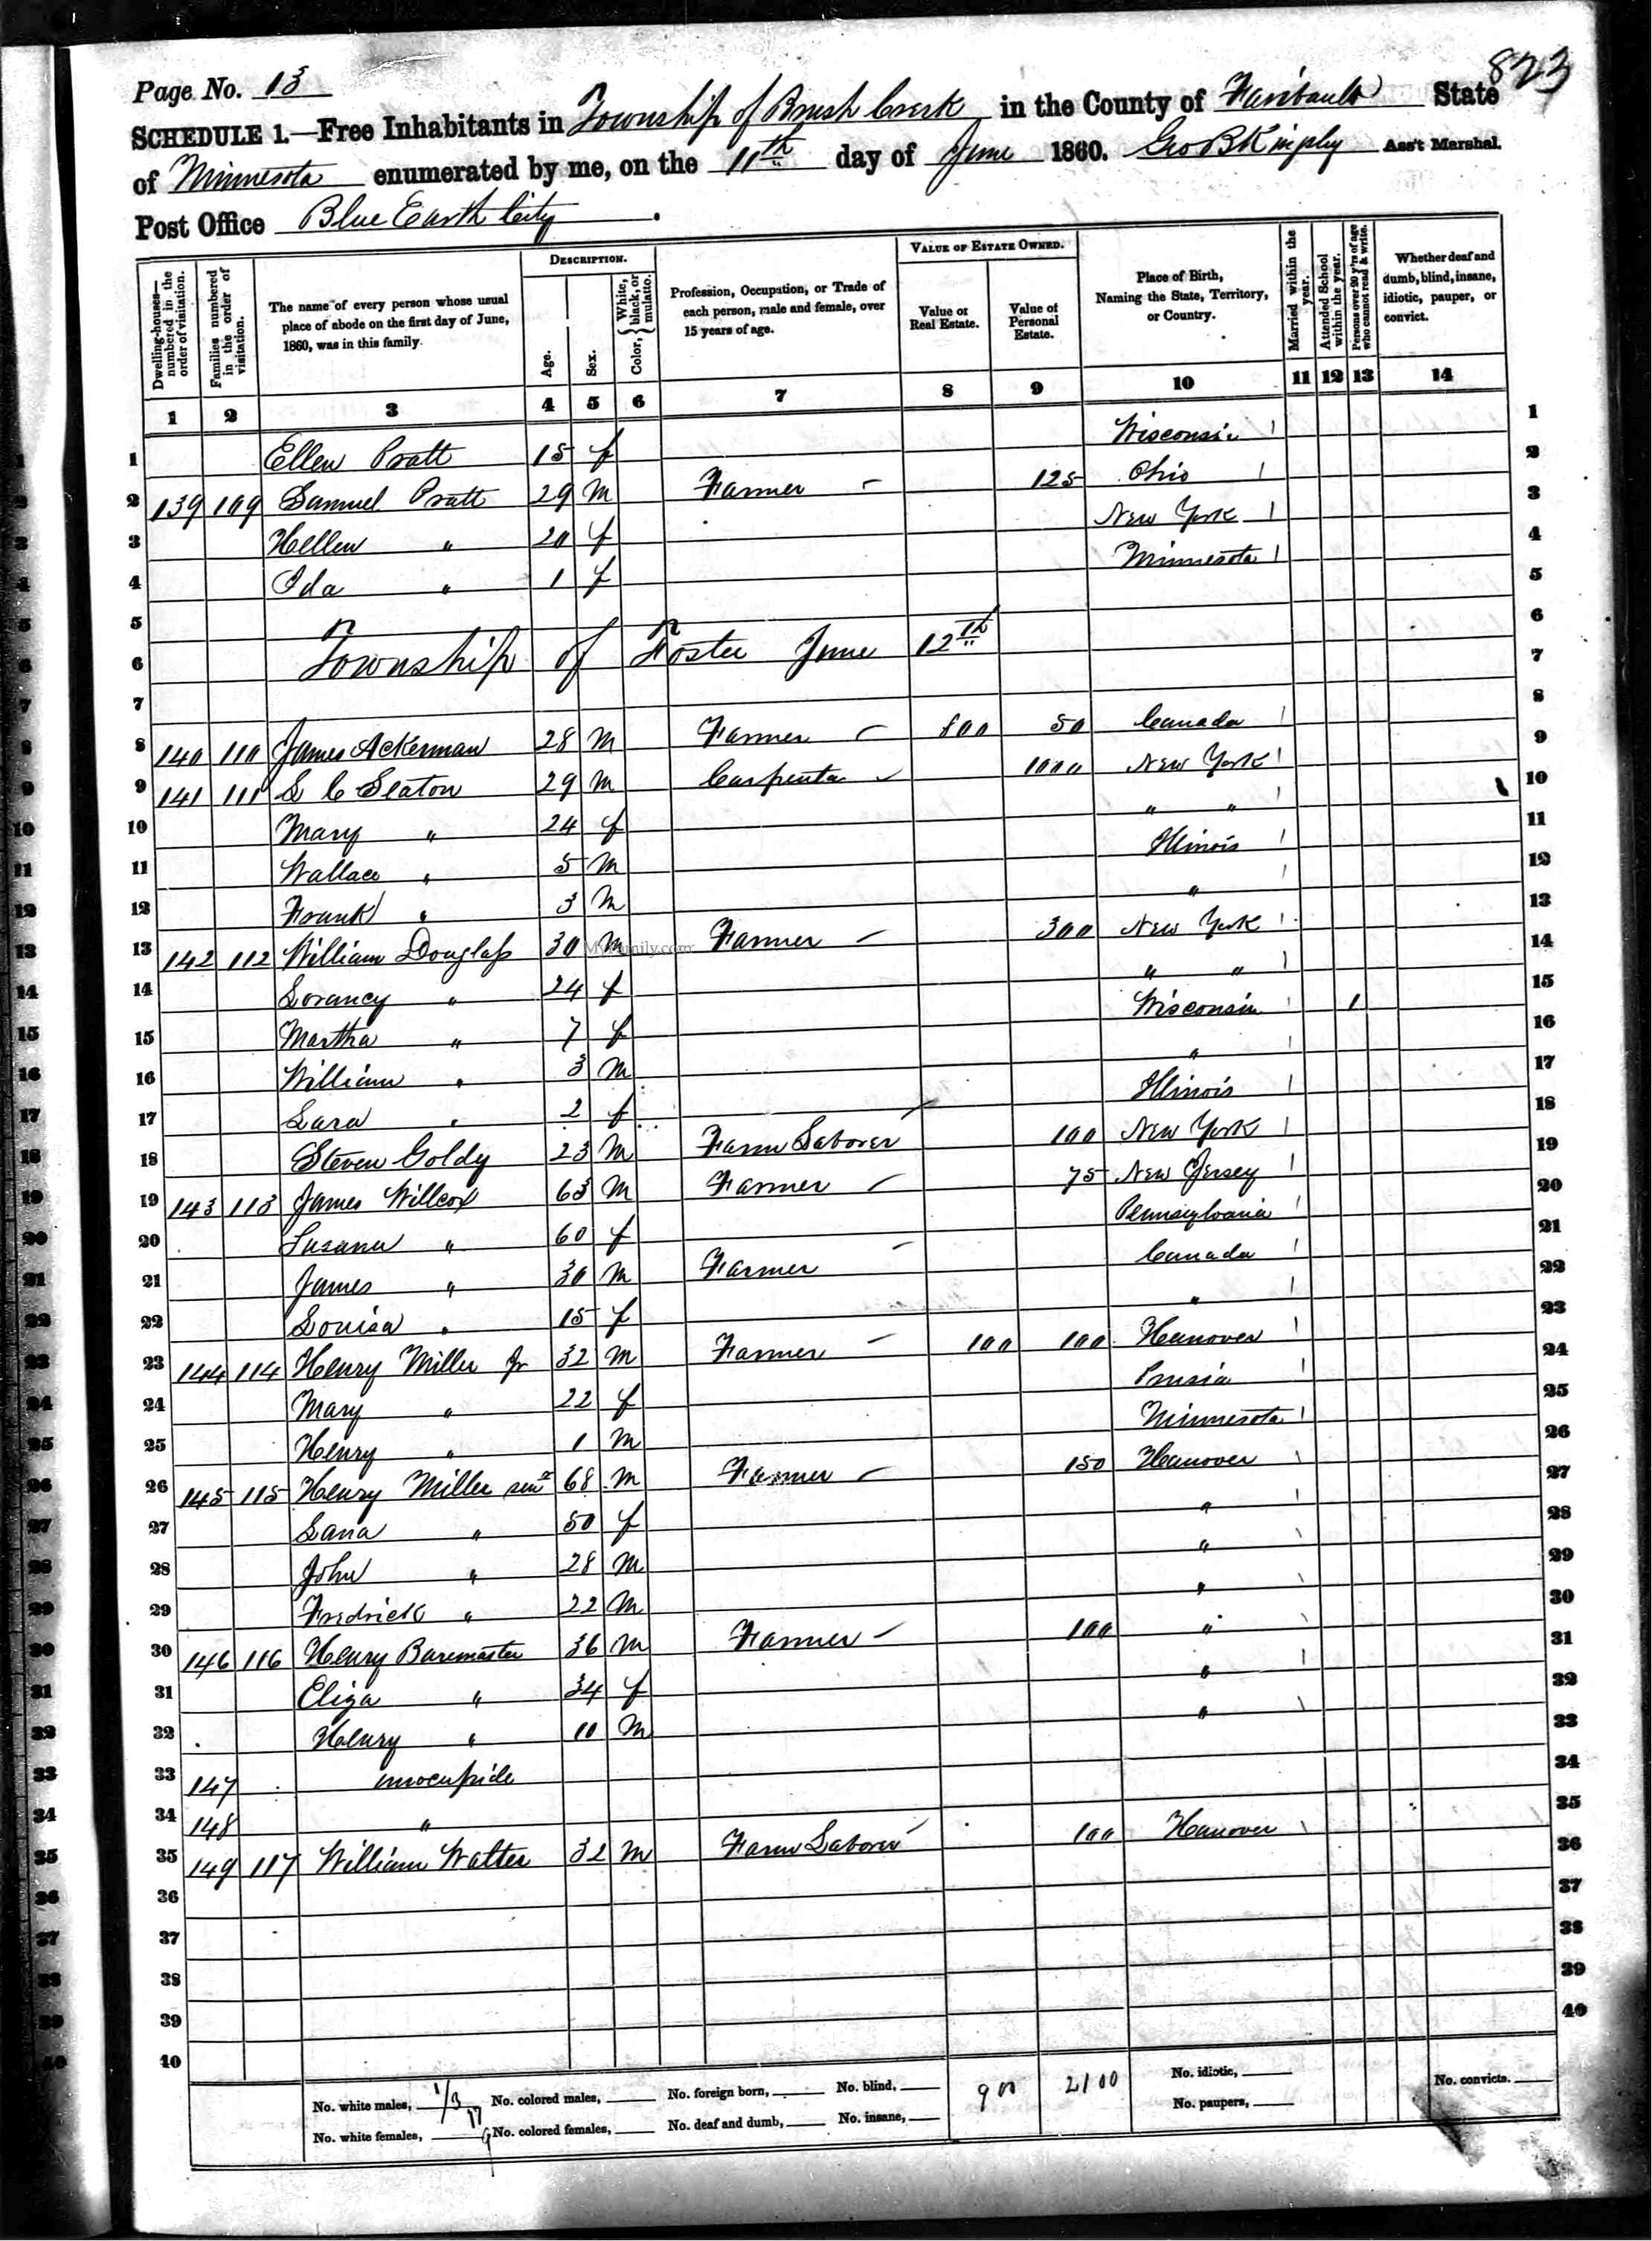 823
Page No. 13
SCHEDULE 1.—Free Inhabitants in Township of Brush Creek in the County of Faribault State
of Minnesota enumerated by me, on the 11th day of June 1860. Geo B Kingsley Ass't Marshal.
Post Office Blue Earth City.
DESCRIPTION. VALUE OF ESTATE OWNED.
Dwelling-houses—numbered in the order of visitation.
Families numbered in the order of visitation.
The name of every person whose usual place of abode on the first day of June, 1860, was in this family.
Age.
Sex.
Color, { White, black, or mulatto.
Profession, Occupation, or Trade of each person, male and female, over 15 years of age.
Value of Real Estate.
Value of Personal Estate.
Place of Birth, Naming the State, Territory, or Country.
Married within the year.
Attended School within the year.
Persons over 20 y'rs of age who cannot read & write.
Whether deaf and dumb, blind, insane, idiotic, pauper, or convict.
1 2 3 4 5 6 7 8 9 10 11 12 13 14
1 Ellen Pratt 15 f Wisconsin 1
2 139 109 Samuel Pratt 29 m Farmer 125 Ohio 2
3 Hellen " 20 f New York 3
4 Ida " 1 f Minnesota 4
5 5
6 Township of Foster June 12th 6
7 7
8 140 110 James Ackerman 28 m Farmer 800 50 Canada 8
9 141 111 S C Seaton 29 m Carpenter 1000 New York 9
10 Mary " 24 f " " 10
11 Wallace " 5 m Illinois 11
12 Frank " 3 m " 12
13 142 112 William Douglass 30 m Farmer 300 New York 13
MyFamily.com
14 Lorancy " 24 f " " 14
15 Martha " 7 f Wisconsin 1 15
16 William " 3 m " 16
17 Lara " 2 f Illinois 17
18 Steven Goldy 23 m Farm Laborer 100 New York 18
19 143 113 James Willcox 63 m Farmer 75 New Jersey 19
20 Susana " 60 f Pennsylvania 20
21 James " 30 m Farmer Canada 21
22 Louisa " 15 f " 22
23 144 114 Henry Miller Jr 32 m Farmer 100 100 Hanover 23
24 Mary " 22 f Prusia 24
25 Henry " 1 m Minnesota 25
26 145 115 Henry Miller senr 68 m Farmer 150 Hanover 26
27 Lana " 50 f " 27
28 John " 28 m " 28
29 Fredrick " 22 m " 29
30 146 116 Henry Baremaster 36 m Farmer 100 " 30
31 Eliza " 34 f " 31
32 Henry " 10 m " 32
33 147 unocupide 33
34 148 " 34
35 149 117 William Walter 32 m Farm Laborer 100 Hanover 35
36 36
37 37
38 38
39 39
40 40
No. white males, No. colored males, No. foreign born, No. blind, 900 2100 No. idiotic, No. convicts.
No. white females, 9 No. colored females, No. deaf and dumb, No. insane, No. paupers,